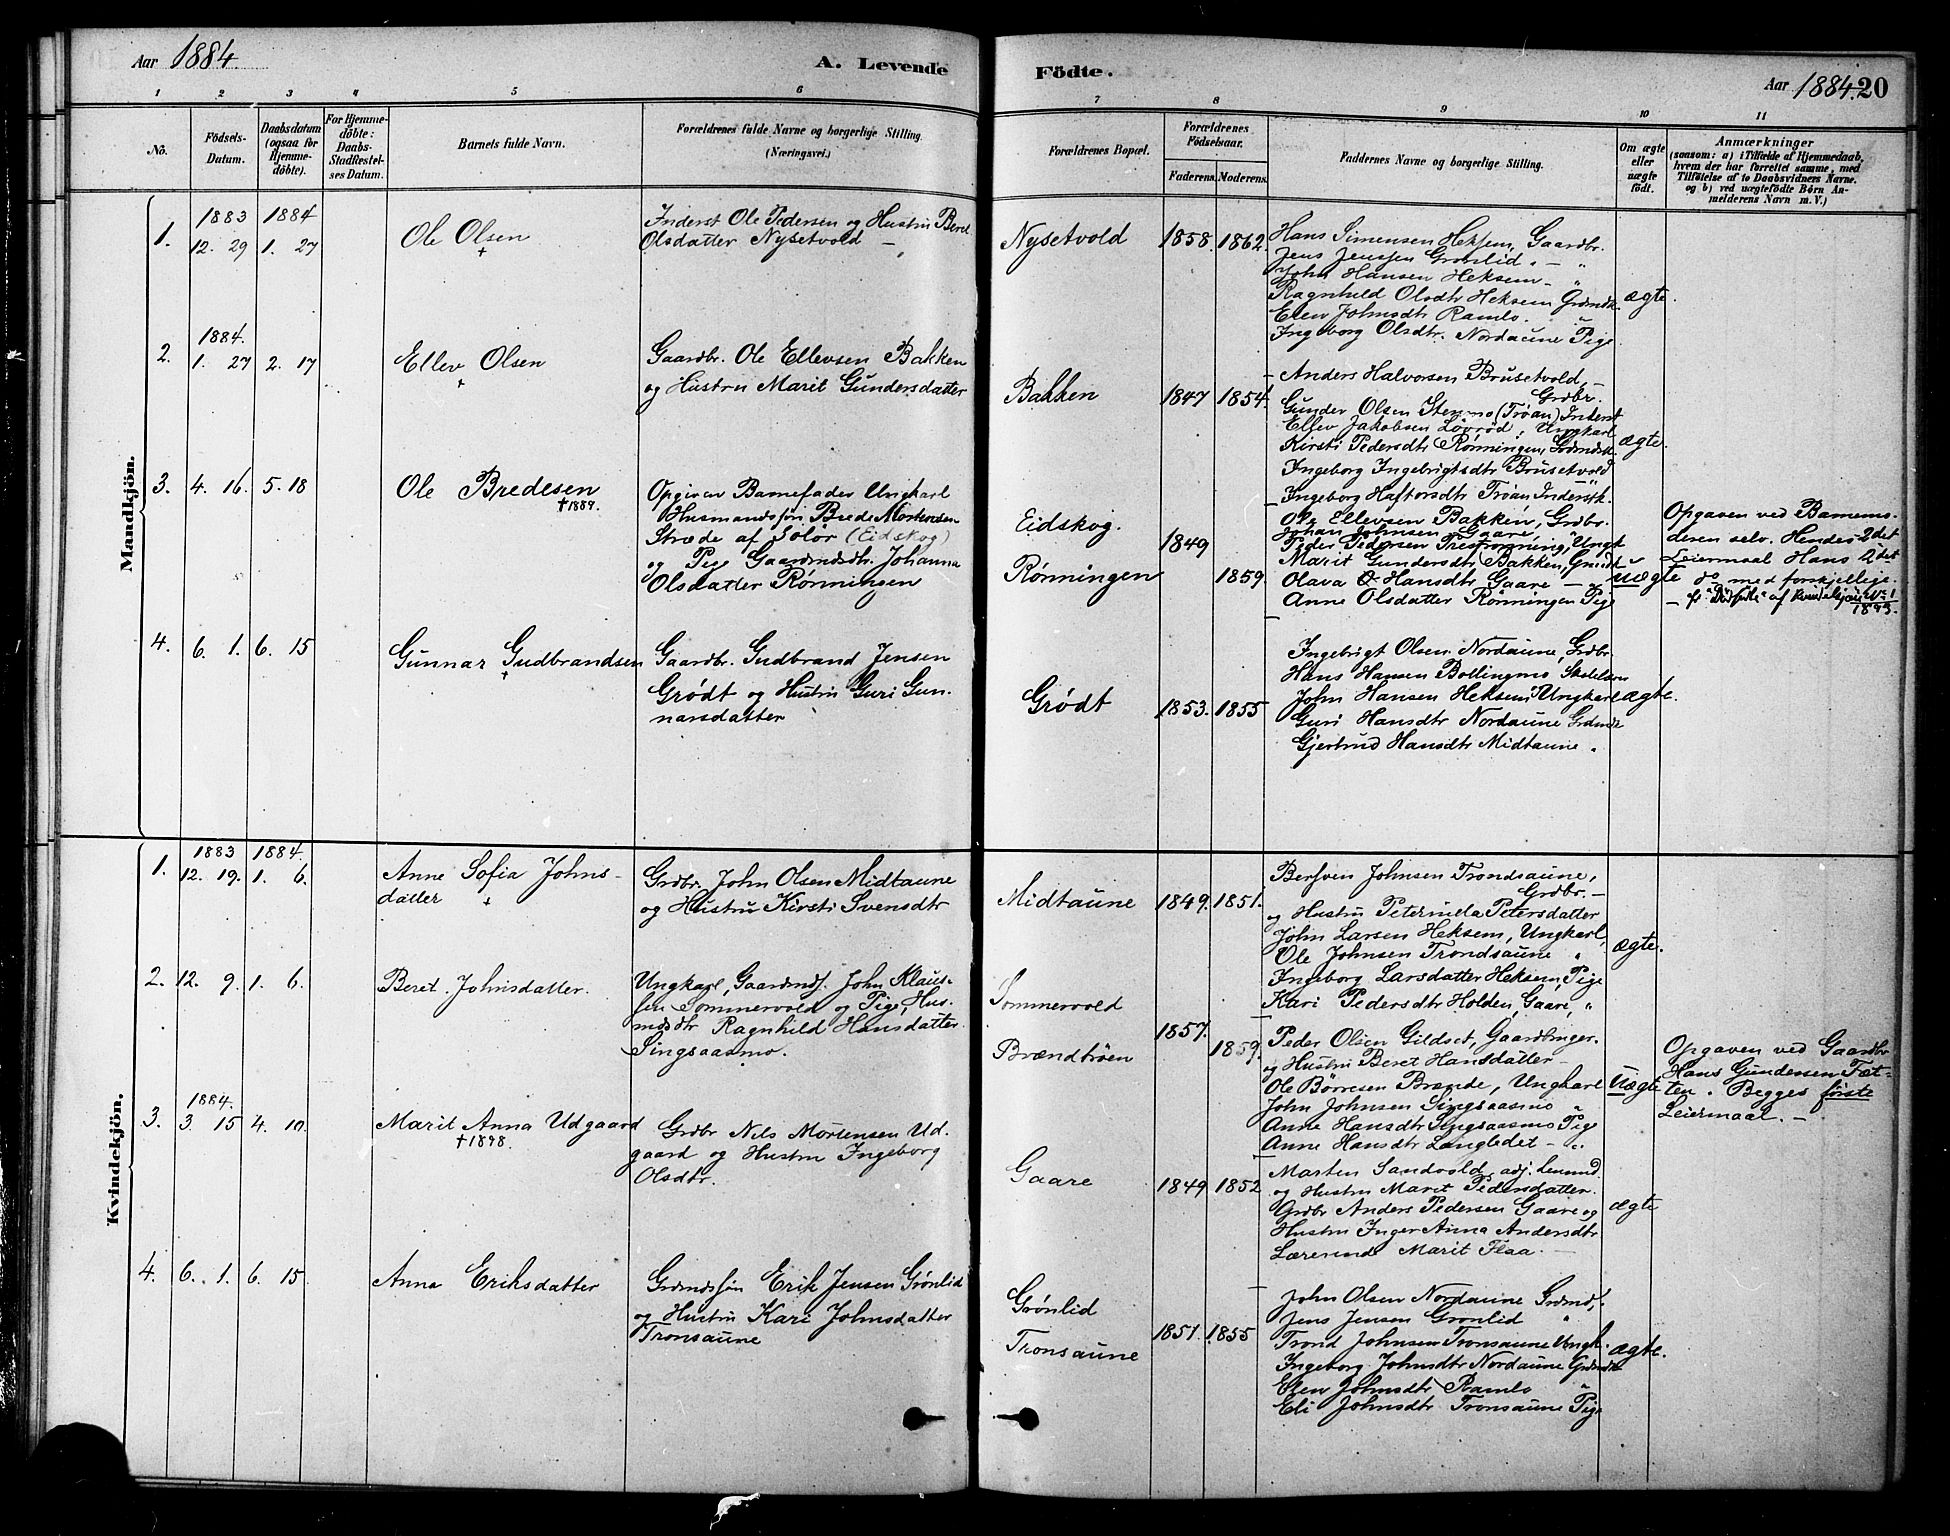 Aar 1884.
A. Levende
Födte.
Aar 1884. 20
1 2 3 4 5 6 7 8 9 10 11
No.
Födsels-
Datum.
Daabsdatum
(ogsaa for
Hjemme-
döbte).
For Hjemme-
döbte:
Daabs-
Stadfæstel-
ses Datum.
Barnets fulde Navn.
Forældrenes fulde Navne og borgerlige Stilling.
(Næringsvei.)
Forældrenes Bopæl.
Forældrenes
Födselsaar.
Faderens. Moderens.
Faddernes Navne og borgerlige Stilling.
Om ægte
eller
uægte
födt.
Anmærkninger
(saasom: a) i Tilfælde af Hjemmedaab,
hvem der har forrettet samme, med
Tilföielse af to Daabsvidners Navne,
og b) ved uægtefödte Börn An-
melderens Navn m. V.)
Mandkjön.
1.
1883 1884
12. 29 1. 27
Ole Olsen
+
Inderst Ole Pedersen og Hustru Beret
Olsdatter Nysetvold —
Nysetvold 1858. 1862.
Hans Simensen Heksem, Gaardbr.
Jens Jenssen Grønlid. — "
John Hansen Heksem — "
Ragnhild Olsdtr Heksem Grdmdsk.
Elen Johnsdtr Ramlo. "
Ingeborg Olsdtr. Nordaune Pige
ægte.
2.
1884.
1. 27 2. 17
Ellev Olsen
+
Gaardbr. Ole Ellevsen Bakken
og Hustru Marit Gundersdatter
Bakken 1847 1854.
Anders Halvorsen Brusetvold,
Grdbr.
Gunder Olsen Stenmo (Trøan) Inderst
Ellev Jakobsen Løvrød, Ungkarl
Kirsti Pedersdtr Rønningen, Grdmdsk.
Ingeborg Ingebrigtsdtr Brusetvold "
Ingeborg Haftorsdtr Trøan Inderstk.
ægte.
3. 4. 16. 5. 18
Ole Bredesen
†1889.
Opgiven Barnefader Ungkarl
Husmandssøn Brede Mortensen
Stræde af Solør (Eidskog)
og Pige Gaardmdsdtr. Johanna
Olsdatter Rønningen
Eidskog.
1849
Rønningen 1859.
Ole Ellevsen Bakken, Grdbr.
Johan Johnsen Gaare,
Peder Pedersen Trestrønning, Ungk.
Marit Gundersdtr Bakken, Gmdsk
Olava O. Hansdtr Gaare —
Anne Olsdatter Rønningen Pige
uægte
Opgaven ved Barnemo-
deren selv. Hendes 2det
Leiermaal Hans 2det
do med forskjellige.
— fr "Dødfødte" af Kvindekjøn No 1
1893.
4. 6. 1. 6. 15
Gunnar Gudbrandsen
+
Gaardbr. Gudbrand Jensen
Grødt og Hustru Guri Gun-
narsdatter
Grødt 1853. 1855
Ingebrigt Olsen Nordaune, Grdbr.
Hans Hansen Bollingmo Skolelærer
John Hansen Heksem Ungkarl
Guri Hansdtr Nordaune Grdmdk
Gjertrud Hansdtr Midtaune "
ægte.
Kvindekjön.
1.
1883 1884.
12. 19. 1. 6.
Anne Sofia Johns-
datter +
Grdbr. John Olsen Midtaune
og Hustru Kirsti Svensdtr
Midtaune 1849. 1851.
Bersven Johnsen Trondsaune,
Grdbr. —
og Hustru Peternila Petersdatter
John Larsen Heksem, Ungkarl,
Ole Johnsen Trondsaune "
Ingeborg Larsdatter Heksem, Pige
Kari Pedersdtr Holden, Gaare, "
ægte.
2. 12. 9. 1. 6.
Beret Johnsdatter.
Ungkarl, Gaardmds. John Klaus-
sen Sommervold og Pige, Hus-
mdsdtr Ragnhild Hansdatter
Singsaasmo.
Sommervold
1857.
Brændtrøen 1859.
Peder Olsen Gildset, Gaardbruger.
og Hustru Beret Hansdatter —
Ole Børresen Brænde, Ungkarl
John Johnsen Singsaasmo "
Anne Hansdtr Singsaasmo Pige
Anne Hansdtr Langledet — "
Uægte
Opgaven ved Gaardbr
Hans Gundersen Tøt-
ten. Begges første
Leiermaal. —
3.
1884.
3 15 4. 10.
Marit Anna Udgaard
†1898.
Grdbr Nils Mortensen Ud-
gaard og Hustru Ingeborg
Olsdtr.
Gaare 1849 1852
Marten Sandvold, adj. Lensmd
og Hustru Marit Pedersdatter.
Grdbr Anders Pedersen Gaare og
Hustru Inger Anna Andersdtr
Lærerinde Marit Flaa. —
ægte
4. 6. 1. 6. 15.
Anna Eriksdatter
Grdmdssøn Erik Jensen Grønlid
og Hustru Kari Johnsdatter
Tronsaune
Grønlid
Tronsaune 1851. 1855
John Olsen Nordaune Grdmd,
Jens Jensen Grønlid "
Trond Johnsen Tronsaune Ungk.
Ingeborg Johnsdtr Nordaune Grdmdsk
Elen Johnsdtr Ramlo "
Eli Johnsdtr Tronsaune Pige
ægte.